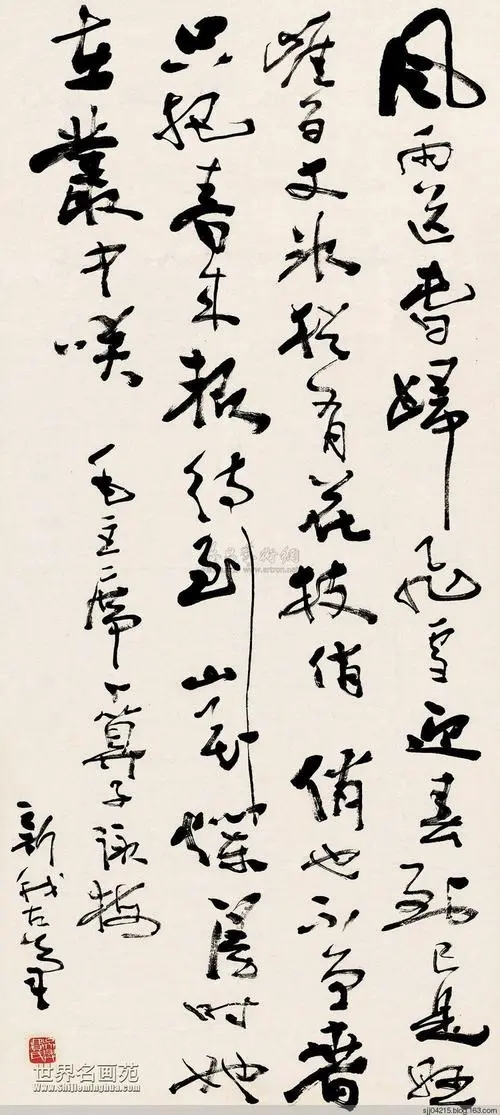 风雨送春歸飛雪迎春到已是懸
崖百丈冰猶有花枝俏俏也不争春
只把春来報待到山花爛漫时她
在叢中笑 毛主席卜算子詠梅
新我左笔
www.artron.net
世界名画苑
www.shijieminghua.com
sjj04215.blog.163.com